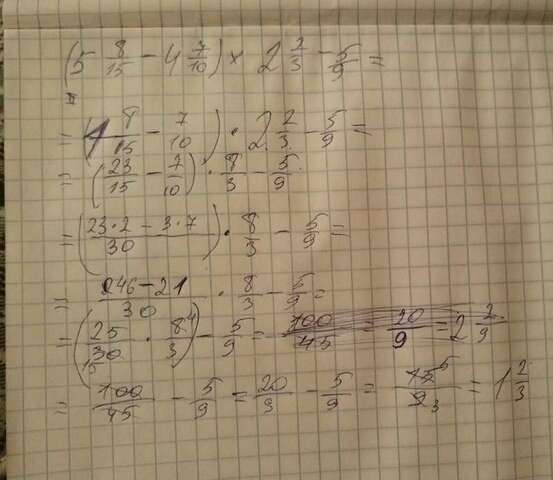 (5 8/15 - 4 7/10) × 2 2/3 - 5/9 =
= (1 8/15 - 7/10) · 2 2/3 - 5/9 =
= (23/15 - 7/10) · 8/3 - 5/9
= (23·2 - 3·7/30) · 8/3 - 5/9 =
= 46-21/30 · 8/3 - 5/9 =
= (25/30 15 · 8 4/3) - 5/9 = 100/45 = 20/9 = 2 2/9
= 100/45 - 5/9 = 20/9 - 5/9 = 15 5/9 3 = 1 2/3